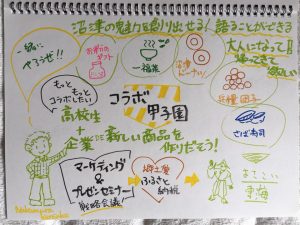 沼津の魅力を創り出せる！語ることができる
大人になって！！
帰ってきて
ほしい
一緒に
やろうぜ!!
お茶の
一福茶
沼津
ドーナツ
兵糧団子
さば寿司
もっと
もっと
コラボしたい
コラボ
甲子園
高校生
+
企業で新しい商品を
作りだそう！
マーケティング
&
プレゼンセミナー
戦略会議
郷土愛
ふるさと
納税
よさこい
東海